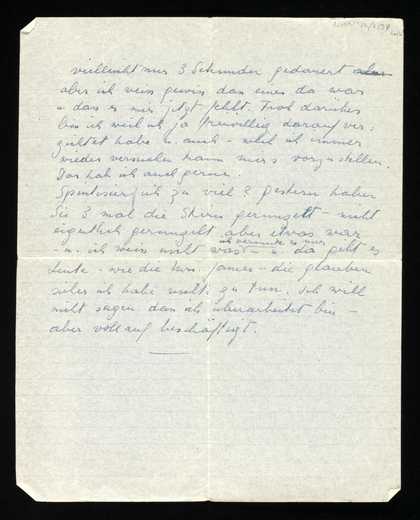 vielleicht nur 3 Sekunden gedauert aber
aber ich weis gewiss dass eines da war
u. dass es mir jetzt fehlt. Trotzdem
bin ich weil ich ja freiwillig darauf ver-
zichtet habe u. auch – weil ich immer
wieder versuchen kann mir's vorzustellen.
Das hab ich auch gerne.
ich zu viel? Gestern haben
Sie 3 mal die Stirn gerunzelt – nicht
eigentlich gerunzelt aber etwas war
– u. ich weiss nicht was – ich vermute es nur – u. da gibt es
Leute – wie die Mrs. James – die glauben
ich habe nicht zu tun. Ich will
nicht sagen dass ich überarbeitet bin –
aber vollauf beschäftigt.